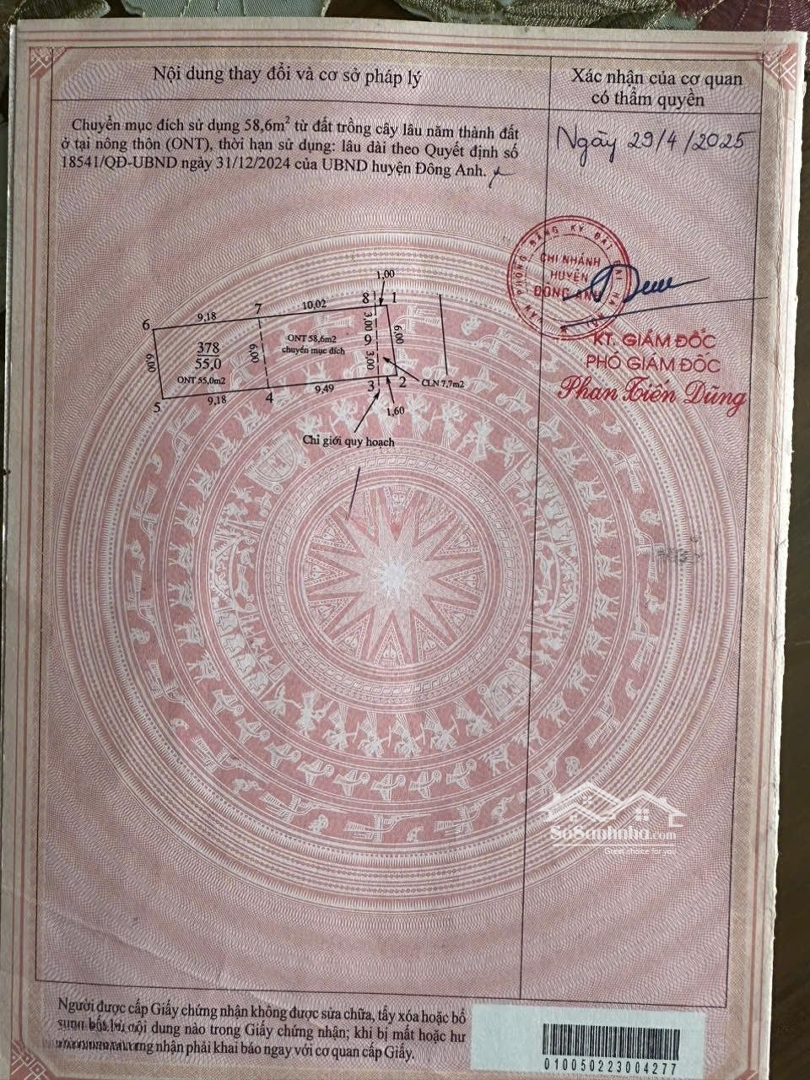 Nội dung thay đổi và cơ sở pháp lý
Xác nhận của cơ quan
có thẩm quyền
Chuyển mục đích sử dụng 58,6m² từ đất trồng cây lâu năm thành đất
ở tại nông thôn (ONT), thời hạn sử dụng: lâu dài theo Quyết định số
18541/QĐ-UBND ngày 31/12/2024 của UBND huyện Đông Anh.
Ngày 29/4/2025
VĂN PHÒNG ĐĂNG KÝ ĐẤT ĐAI HÀ NỘI
CHI NHÁNH
HUYỆN
ĐÔNG ANH
KT. GIÁM ĐỐC
PHÓ GIÁM ĐỐC
Phan Tiến Dũng
1,00
6 9,18 7 10,02 8 1
6,00
378
55,0
ONT 55,0m2
6,00
ONT 58,6m2
chuyển mục đích
3,00
9
3,00
6,00
5 9,18 4 9,49 3 2
CLN 7,7m2
1,60
Chỉ giới quy hoạch
SoSanhnha.com
Good choice for you
Người được cấp Giấy chứng nhận không được sửa chữa, tẩy xóa hoặc bổ
sung bất kỳ nội dung nào trong Giấy chứng nhận; khi bị mất hoặc hư
nhận phải khai báo ngay với cơ quan cấp Giấy.
010050223004277